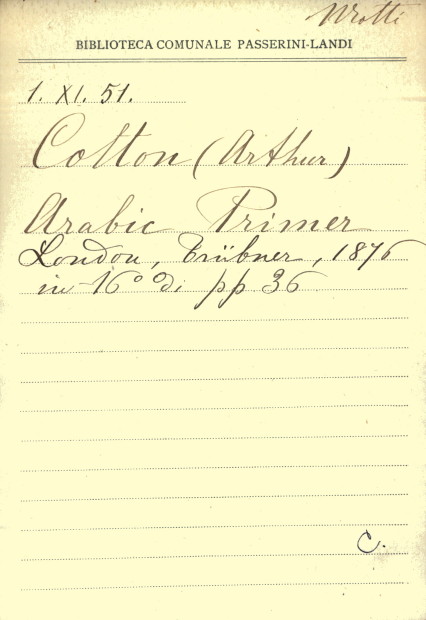 Motti
BIBLIOTECA COMUNALE PASSERINI-LANDI
1. XI. 51.
Cotton (Arthur)
Arabic Primer
London, Trübner, 1876
in 16° di pp 36
C.